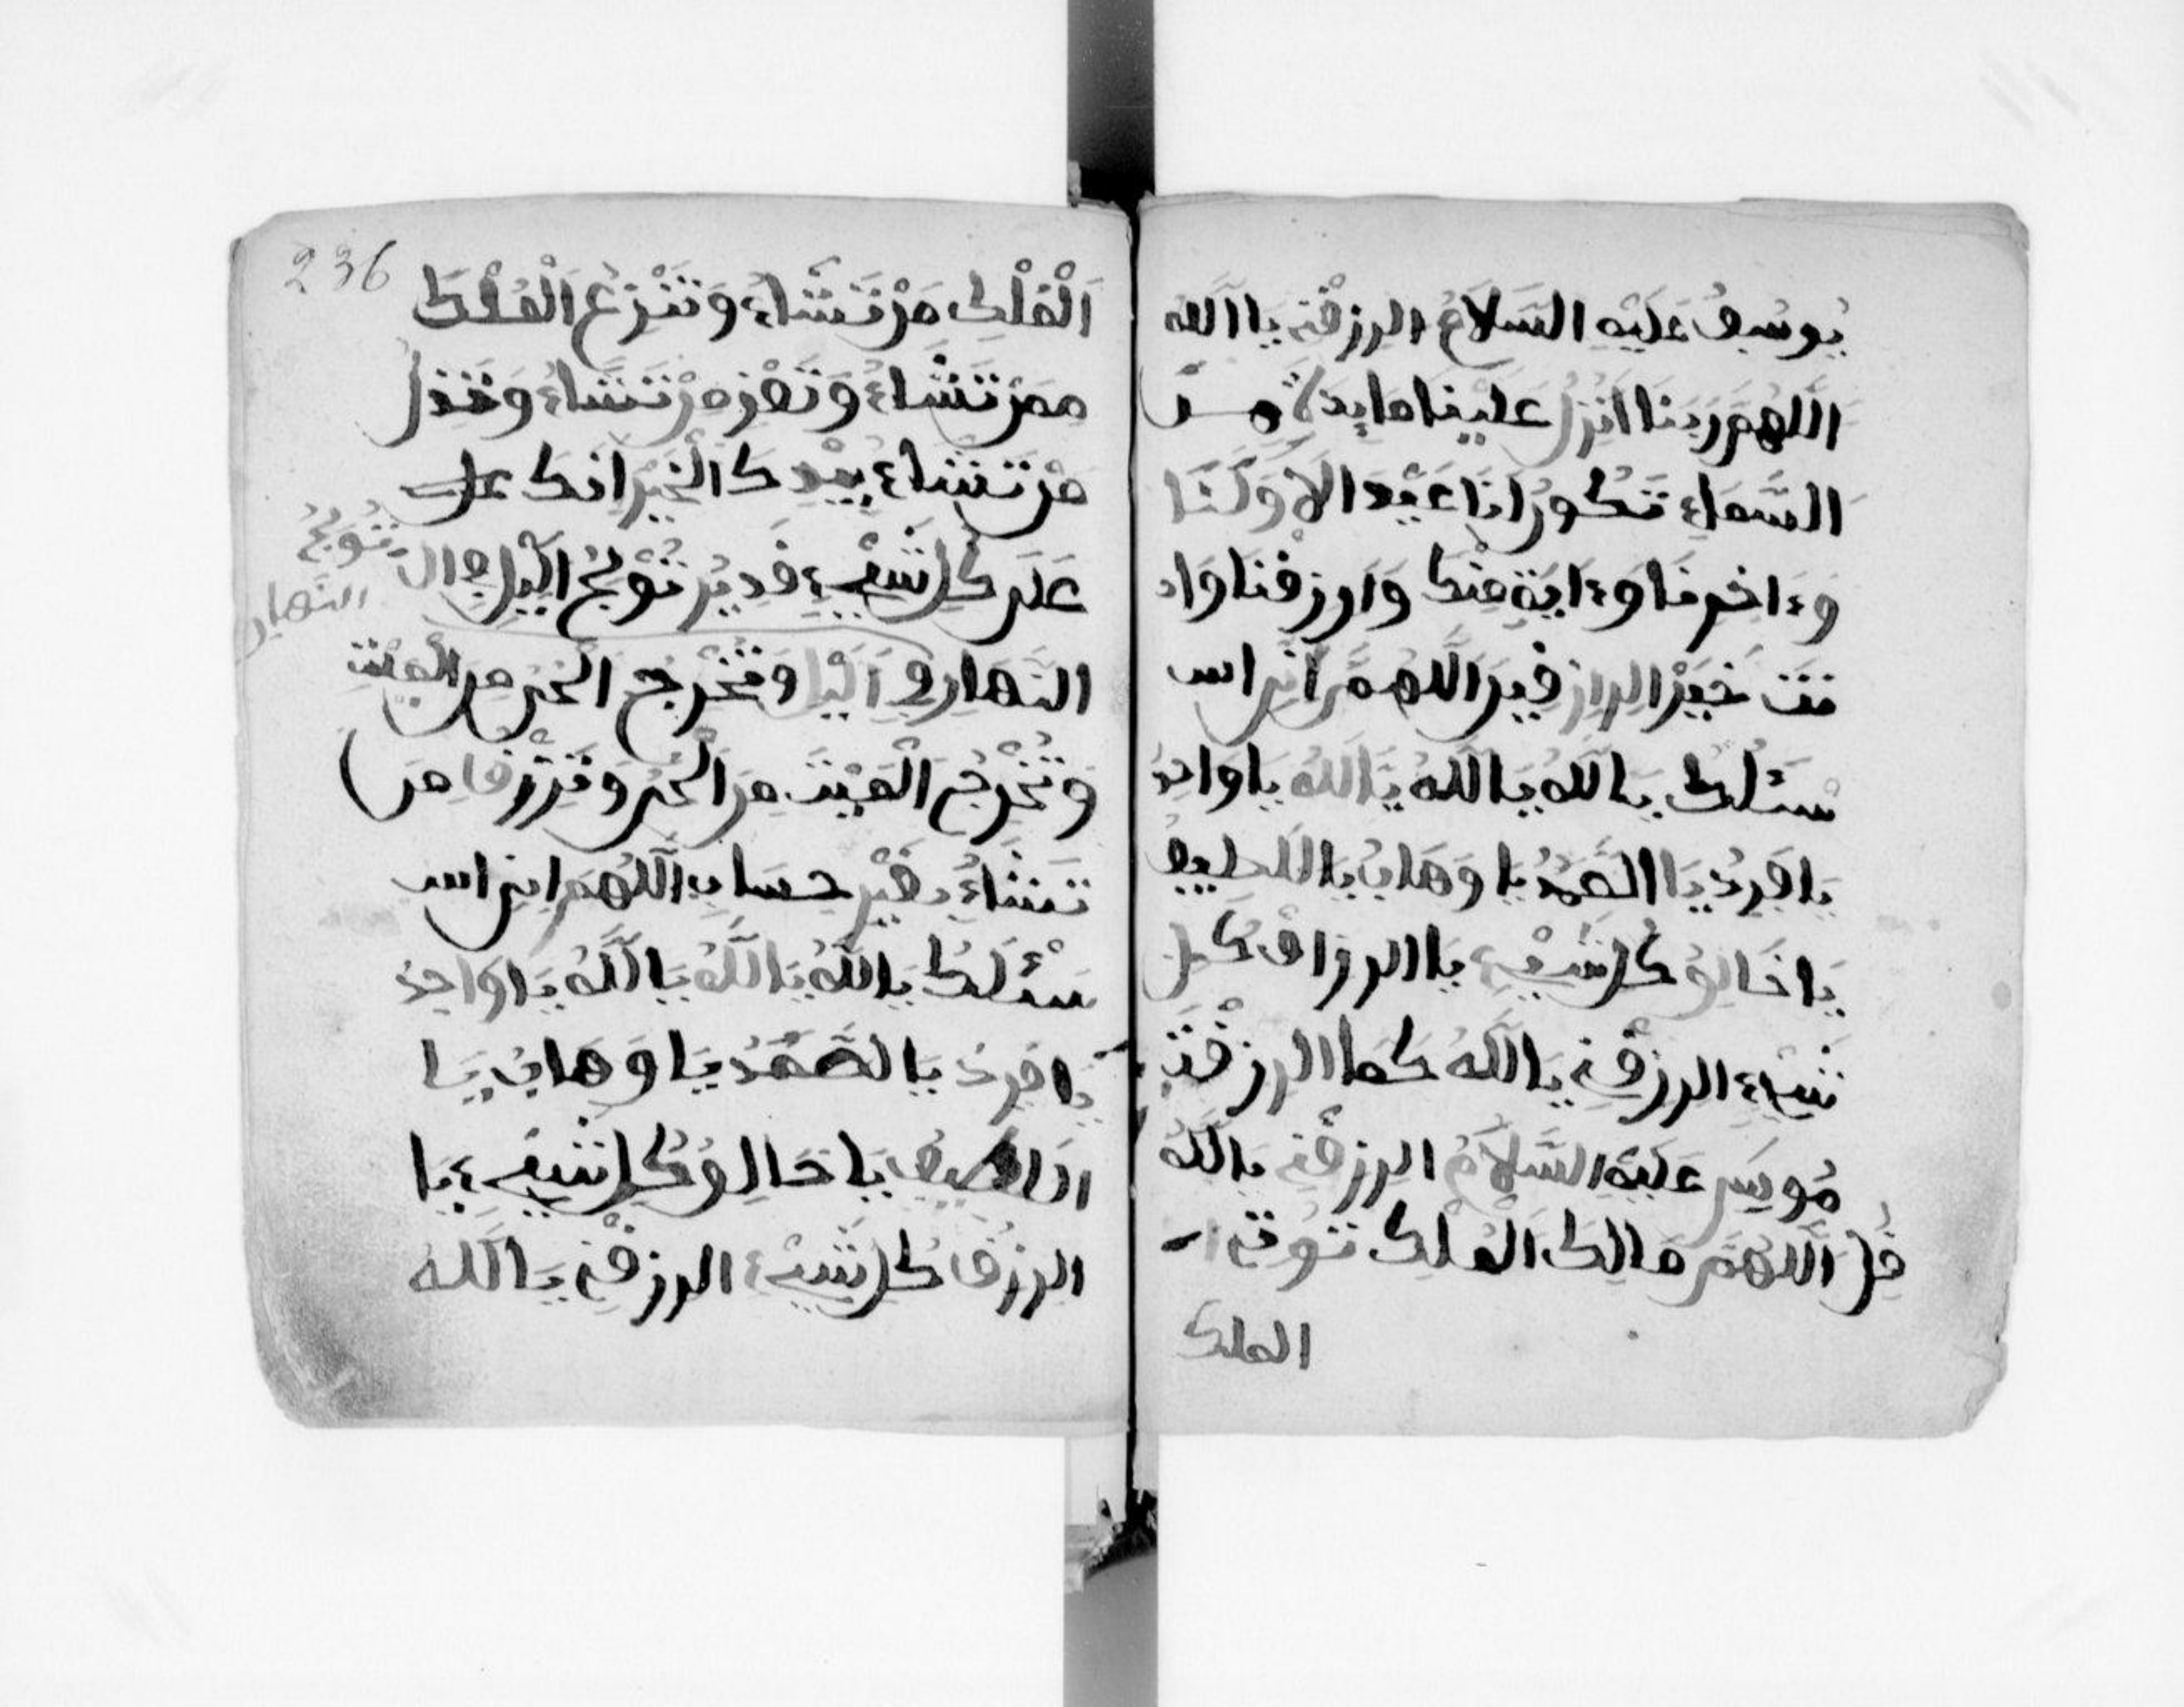 يُوسُف عَلَيْهِ السَّلَامُ الرزقْنِ يَا اللّه
اللَّهُمَّ رَبَنَا اَنْزِلْ عَلَيْنَا مَايِدَةً مِـنَ
السَّمَاءِ تَكُونُ لَنَا عَيْدَا لِأَوَّلِنَا
وَءَاخِرِنَا وَءَايَةً مِنْكَ وَارزقنا وَاَ
نتَ خَيْرُ الرازِقِيرَ اللَّهُمَّ اَنِّى اس
سْئَلُكَ يَاللّهُ يَاللّهُ يَاللّهُ يَاوَاحِدُ
يَا فَرِدُ يَا الصَّمَدُ يَا وَهَابُ يَا اللَطِيفُ
يَا خَالِقُ كُلِّ شَيْءٍ يَا الرزاقُ كُلِّ
شَيْءٍ الرزقْنِ يَاللّهُ كَمَا الرزقْتَ
مُوسَى عَلَيْهِ السَّلَامُ الرزقْنِ يَاللّهُ
قُلِ اللَّهُمَّ مَالِكَ الْمُلْكِ تُوتِى
الملك
236
اَلْمُلْكَ مَنْ تَشَاءُ وَتَنْزِعُ الْمُلْكَ
مِمَّنْ تَشَاءُ وَتُعِزُّ مَنْ تَشَاءُ وَتُذِلُّ
مَنْ تَشَاءُ بِيَدِكَ الْخَيْرُ اِنَّكَ على
عَلَى كُلِّ شَيْءٍ قَدِيرٌ تُوْلِجُ الَّيْلَ فِي ال
تُولِجُ النهار
النَهَارِ فِي الَيْلِ وَتُخْرِجُ الْحَيَّ مِنَ الْمَيِّتِ
وَتُخْرِجُ الْمَيِّتَ مِنَ الْحَيِّ وَتَرْزُقُ مَن
تَشَاءُ بِغَيْرِ حِسَابٍ اللَّهُمَّ انِى اس
سْئَلُكَ يَاللّهُ يَاللّهُ يَاللّهُ يَا وَاحِدُ
يَا فَرِدُ يَا الصَّمَدُ يَا وَهَابُ يَا
اللطِيفُ يَا خَالِقُ كُلِّ شَيْءٍ يَا
الرزُقُ كُلِّ شَيْءٍ الرزقْنِ يَاللّهُ